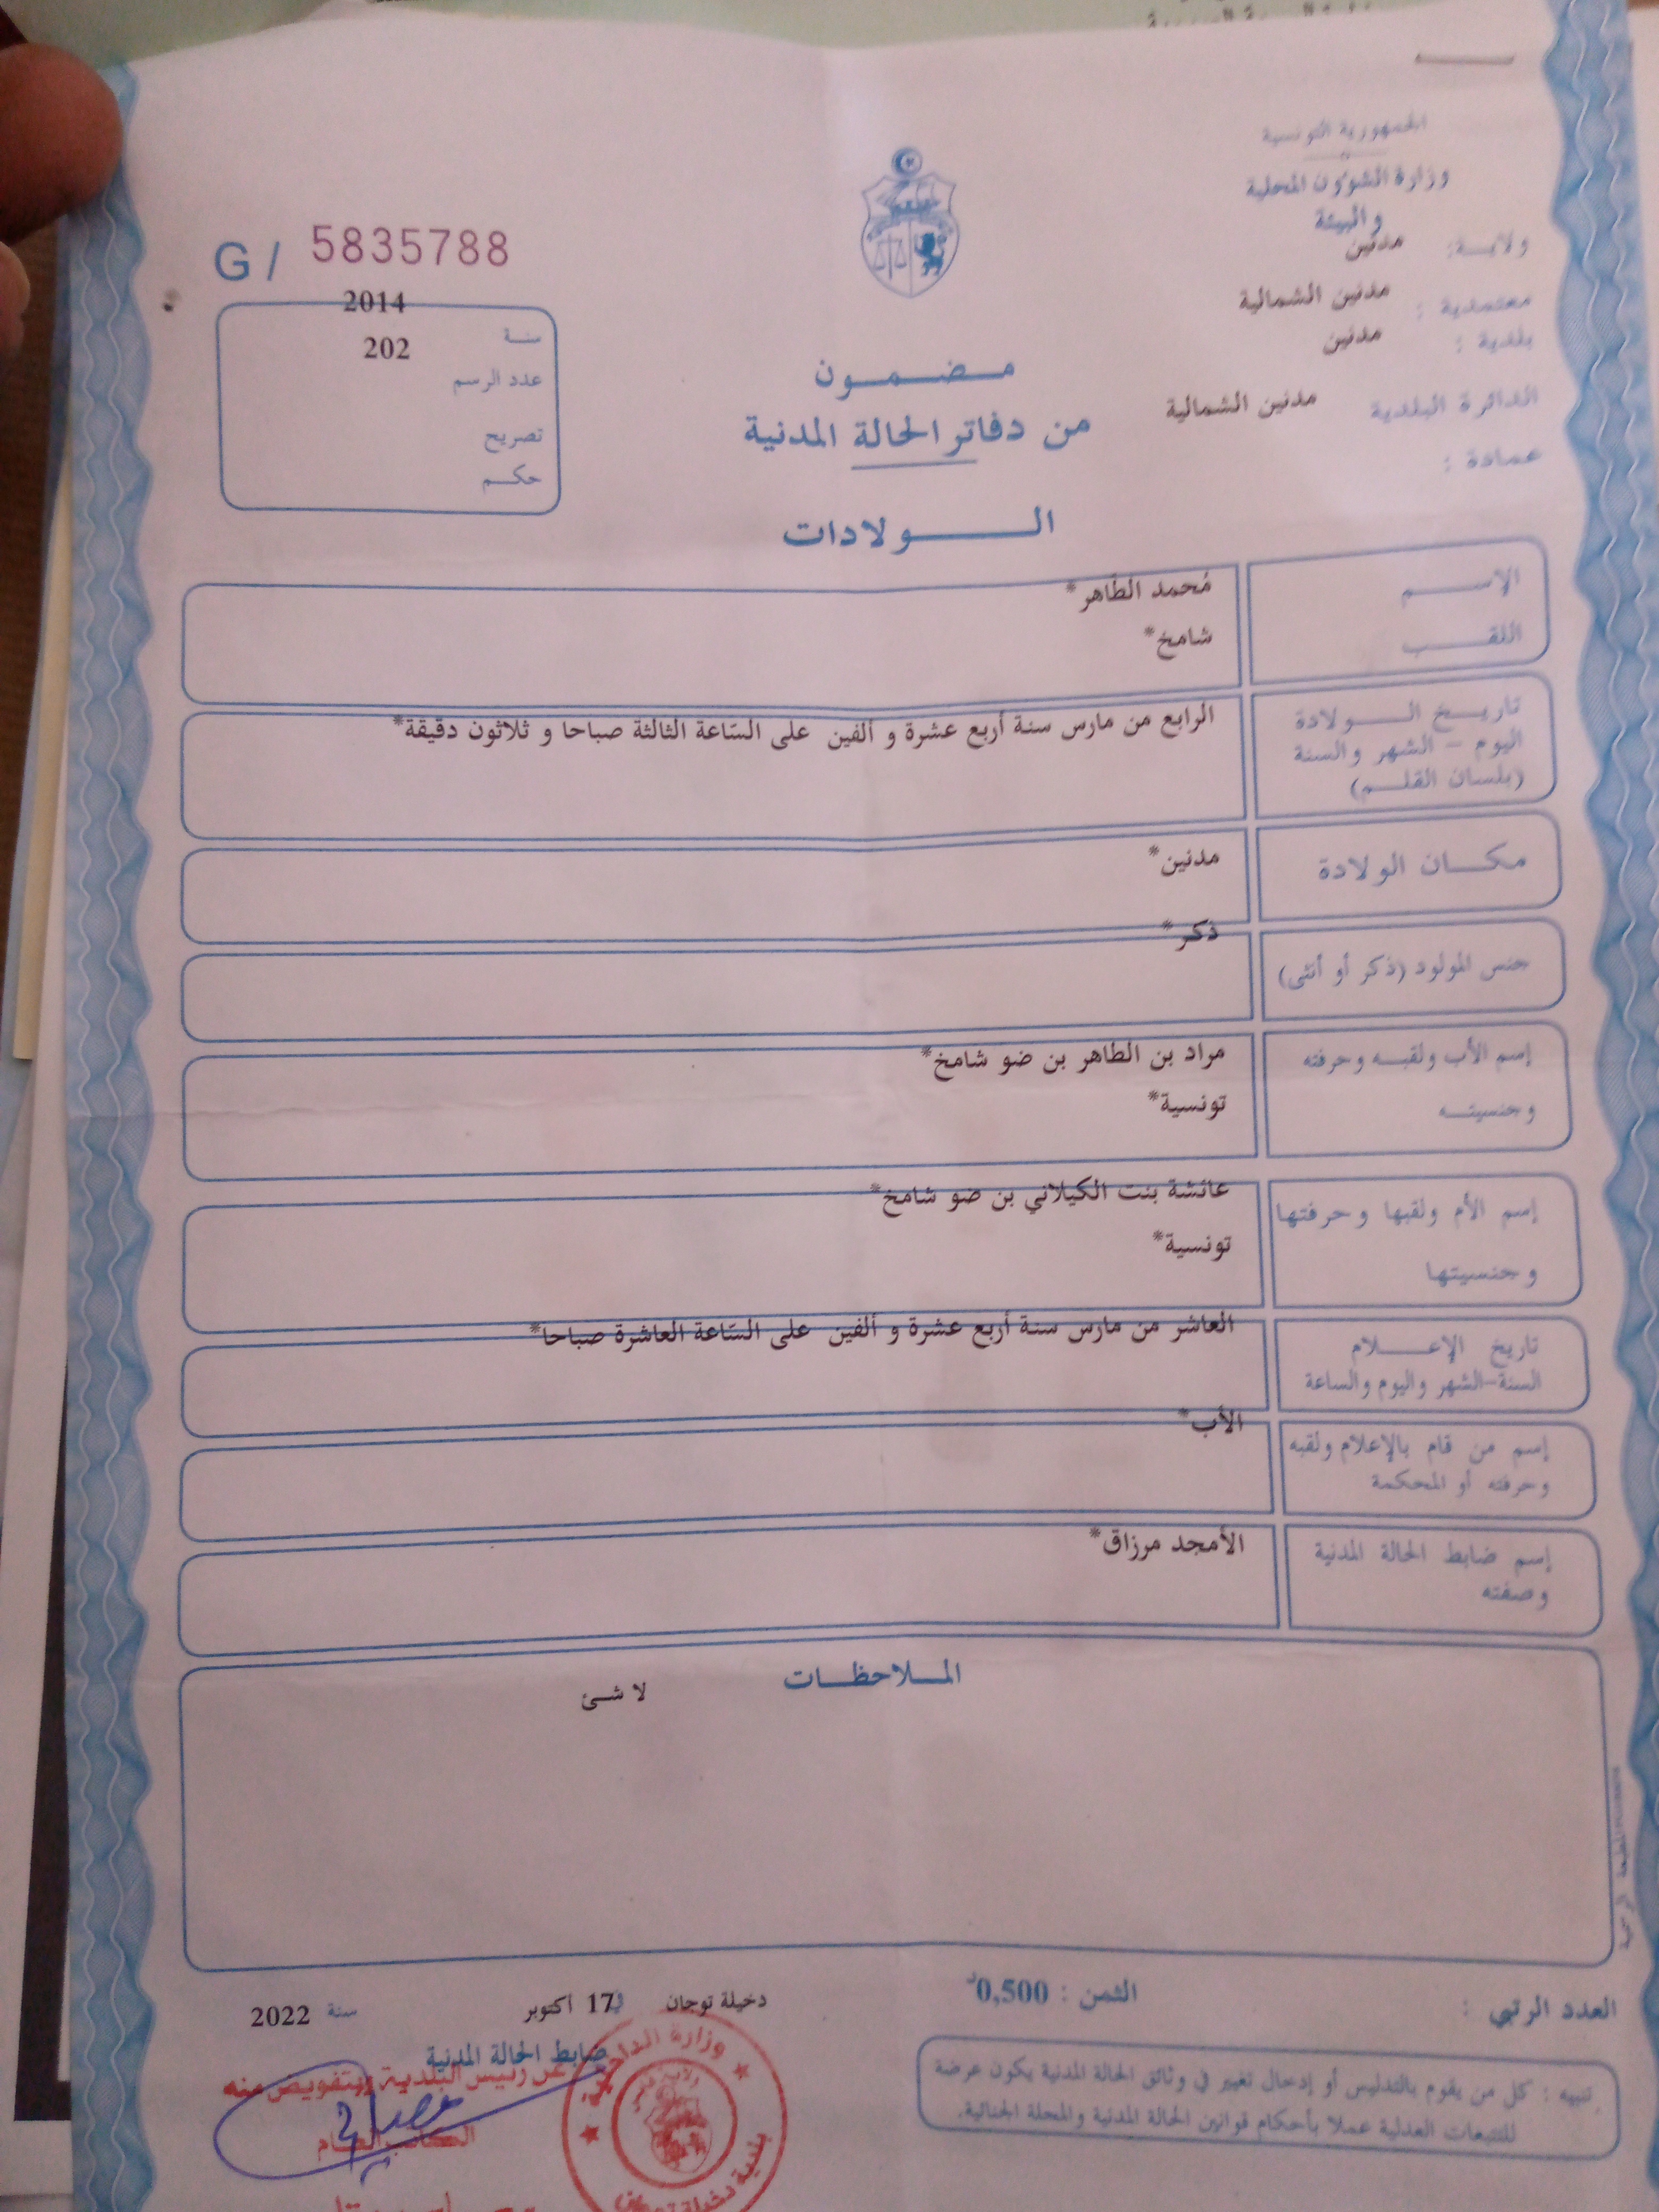 الجمهورية التونسية
وزارة الشؤون المحلية
والبيئة
ولايـة: مدنين
معتمدية : مدنين الشمالية
بلدية : مدنين
الدائرة البلدية مدنين الشمالية
عمادة :
G / 5835788
سنة 2014
عدد الرسم 202
تصريح
حكم
مضمون
من دفاتر الحالة المدنية
الولادات
الإسم مُحمد الطّاهر*
اللقب شامخ*
تاريخ الولادة الرابع من مارس سنة أربع عشرة و ألفين على السّاعة الثالثة صباحا و ثلاثون دقيقة*
اليوم - الشهر والسنة
(بلسان القلم)
مكان الولادة مدنين*
جنس المولود (ذكر أو أنثى) ذكر*
إسم الأب ولقبه وحرفته مراد بن الطاهر بن ضو شامخ*
وجنسيته تونسية*
إسم الأم ولقبها وحرفتها عائشة بنت الكيلاني بن ضو شامخ*
وجنسيتها تونسية*
تاريخ الإعلام العاشر من مارس سنة أربع عشرة و ألفين على السّاعة العاشرة صباحا*
السنة-الشهر واليوم والساعة
إسم من قام بالإعلام ولقبه الأب*
وحرفته أو المحكمة
إسم ضابط الحالة المدنية الأمجد مرزاق*
وصفته
الملاحظات
لا شئ
المطبعة الرسمية
العدد الرتبي : الثمن : 0,500د
دخيلة توجان في 17 أكتوبر سنة 2022
ضابط الحالة المدنية
عن رئيس البلدية وبتفويض منه
الكاتب العام
وزارة الداخلية
بلدية دخيلة توجان
تنبيه : كل من يقوم بالتدليس أو إدخال تغيير في وثائق الحالة المدنية يكون عرضة
للتتبعات العدلية عملا بأحكام قوانين الحالة المدنية والمجلة الجنائية.